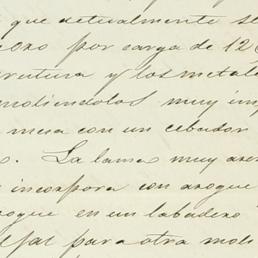 que actualmente se
por carga de 12
y los metale
moliendolos muy
mesa con un cebador
La lama muy
incorpora con azogue
en un labadero
para otra mol